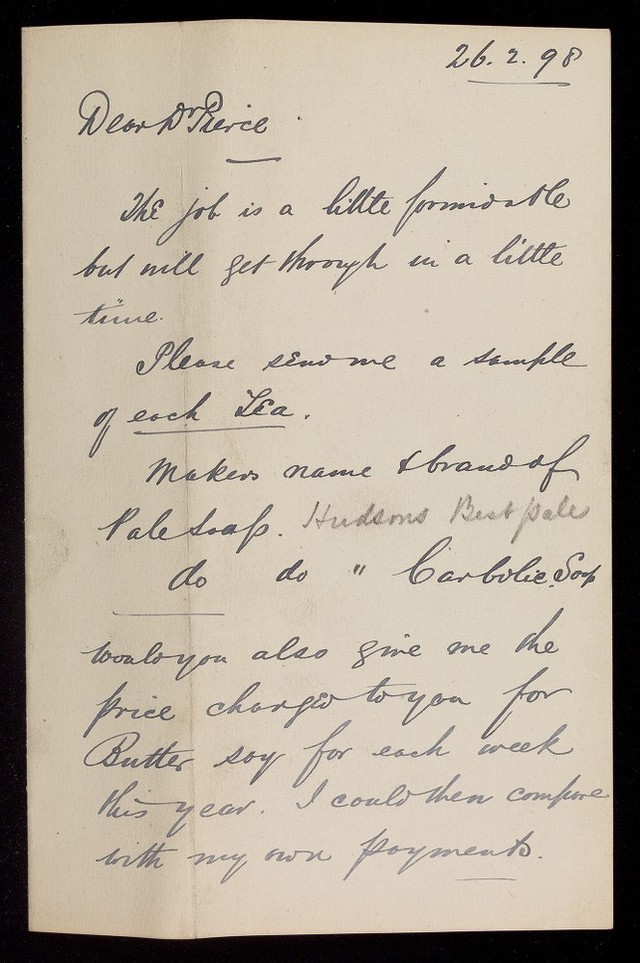 26. 2. 98
Dear Dr Pierce
The job is a little formidable
but will get through in a little
time.
Please send me a sample
of each Tea.
Makers name & brand of
Pale Soap. Hudsons Best pale
do do " Carbolic Soap
Would you also give me the
price charged to you for
Butter say for each week
this year. I could then compare
with my own payments.